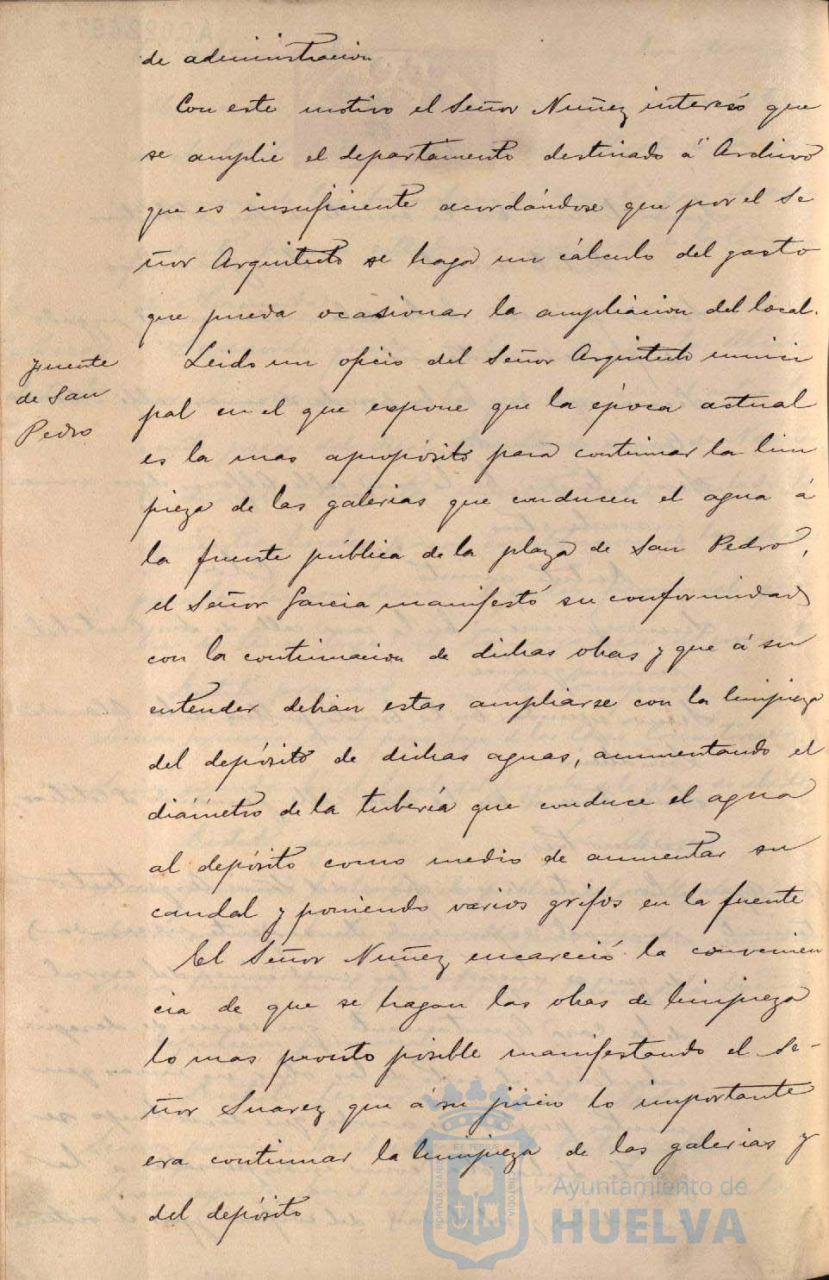 de administracion
Con este motivo el Señor Nuñez interesó que
se amplie el departamento destinado á Archivo
que es insuficiente acordándose que por el Se
ñor Arquitecto se haga un cálculo del gasto
que pueda ocasionar la ampliacion del local.
Fuente
de San
Pedro
Leido un oficio del Señor Arquitecto munici
pal en el que expone que la época actual
es la mas apropósito para continuar la lim
pieza de las galerias que conducen el agua á
la fuente pública de la plaza de San Pedro,
el Señor Garcia manifestó su conformidad
con la continuacion de dichas obras y que á su
entender debian estas ampliarse con la limpieza
del depósito de dichas aguas, aumentando el
diámetro de la tubería que conduce el agua
al depósito como medio de aumentar su
caudal y poniendo varios grifos en la fuente
El Señor Nuñez encareció la convenien
cia de que se hagan las obras de limpieza
lo mas pronto posible manifestando el Se-
ñor Suarez que á su juicio lo importante
era continuar la limpieza de las galerias y
del depósito
Ayuntamiento de
HUELVA